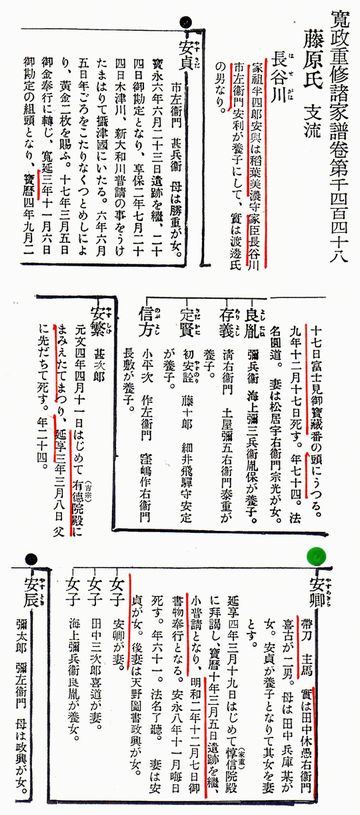 寛政重修諸家譜巻第千四百四十八
藤原氏 支流
長谷川
はせがは
家祖半四郎安興は稲葉美濃守家臣長谷川
市左衛門安利が養子にして、實は渡邊氏
の男なり。
安貞
やすさだ
市左衛門 甚兵衞 母は勝重が女。
寶永六年六月二十三日遺跡を繼、二十
四日御勘定となり、享保二年七月二十
四日木津川、新大和川普請の事をうけ
たまはりて攝津國にいたる。六年六月
五日年ごろをこたりなくつとめしによ
り、黄金二枚を賜ふ。十七年三月五日
御金奉行に轉じ、寛延三年十一月六日
御勘定の組頭となり、寶暦四年九月二
十七日富士見御寶藏番の頭にうつる。
九年十二月十七日死す。年七十四。法
名圓道。妻は松居宇右衛門宗光が女。
良胤
彌兵衞 海上彌三兵衞胤保が養子。
存義
清右衛門 土屋彌五右衛門泰重が
養子。
定賢
初安詮 藤十郎 細井飛驒守安定
が養子。
信方
小平次 作左衛門 窪嶋作右衛門
長敷が養子。
安繁
甚次郎
元文四年四月十一日はじめて有德院殿に
(吉宗)
まみえたてまつり、延享三年三月八日父
に先だちて死す。年二十四。
安卿
帶刀 主馬 實は田中休愚右衛門
喜古が二男。母は田中兵庫某が
女。安貞が養子となりて其女を妻
とす。
延享四年三月十九日はじめて惇信院殿
(家重)
に拜謁し、寶暦十年三月五日遺跡を繼、
小普請となり、明和二年十二月七日御
書物奉行となる。安永八年十一月晦日
死す。年六十一。法名了聽。 妻は安
貞が女。後妻は天野圖書政興が女。
女子 安卿が妻。
女子 田中三次郎喜道が妻。
女子 海上彌兵衞良胤が養女。
安辰
やすとき
彌太郎 彌左衛門 母は政興が女。